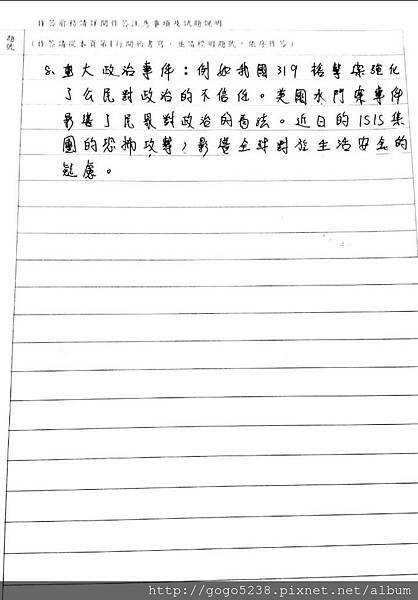 作答前務請詳閱作答注意事項及試題說明
題號
(作答請從本頁第1行開始書寫，並請標明題號，依序作答)
8. 重大政治事件：例如我國319槍擊案強化
了公民對政治的不信任。美國水門案事件
影響了民眾對政治的看法。近日的ISIS集
團的恐怖攻擊，影響全球對於生活安全的
疑慮。
http://gogo5238.pixnet.net/album